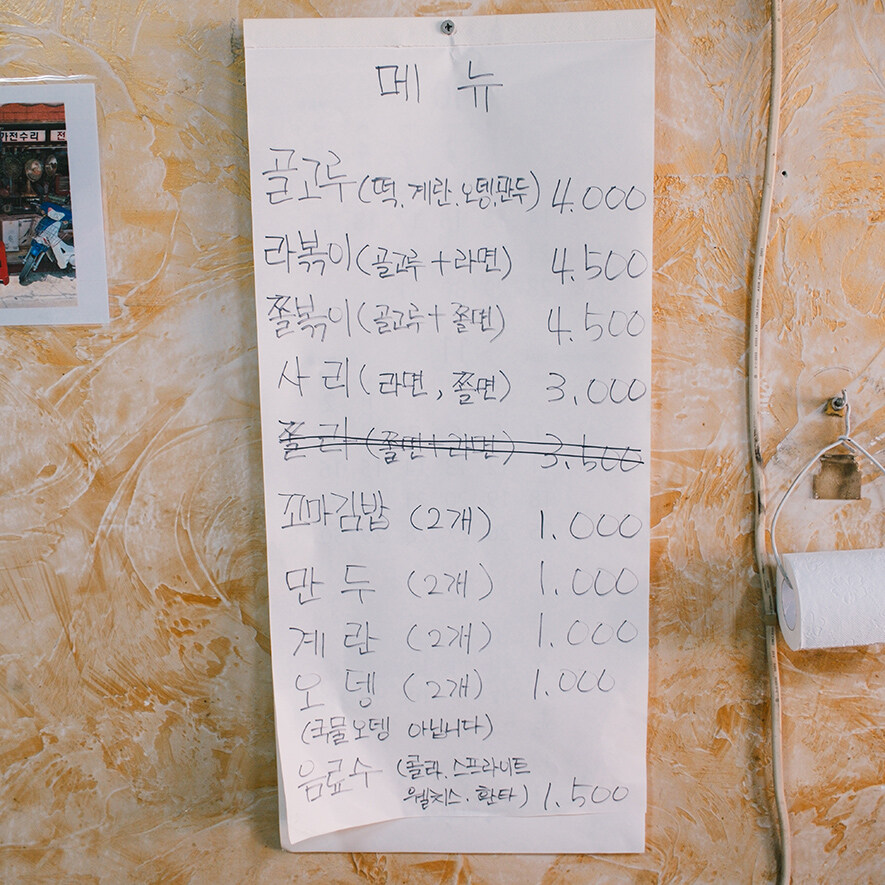 가전수리 전
메 뉴
골고루 (떡, 계란, 오뎅, 만두) 4.000
라볶이 (골고루 + 라면) 4.500
쫄볶이 (골고루 + 쫄면) 4.500
사 리 (라면, 쫄면) 3.000
쫄 리 (쫄면 + 라면) 3.500
꼬마김밥 (2개) 1.000
만 두 (2개) 1.000
계 란 (2개) 1.000
오 뎅 (2개) 1.000
(국물오뎅 아닙니다)
음료수 (콜라, 스프라이트
웰치스, 환타) 1.500